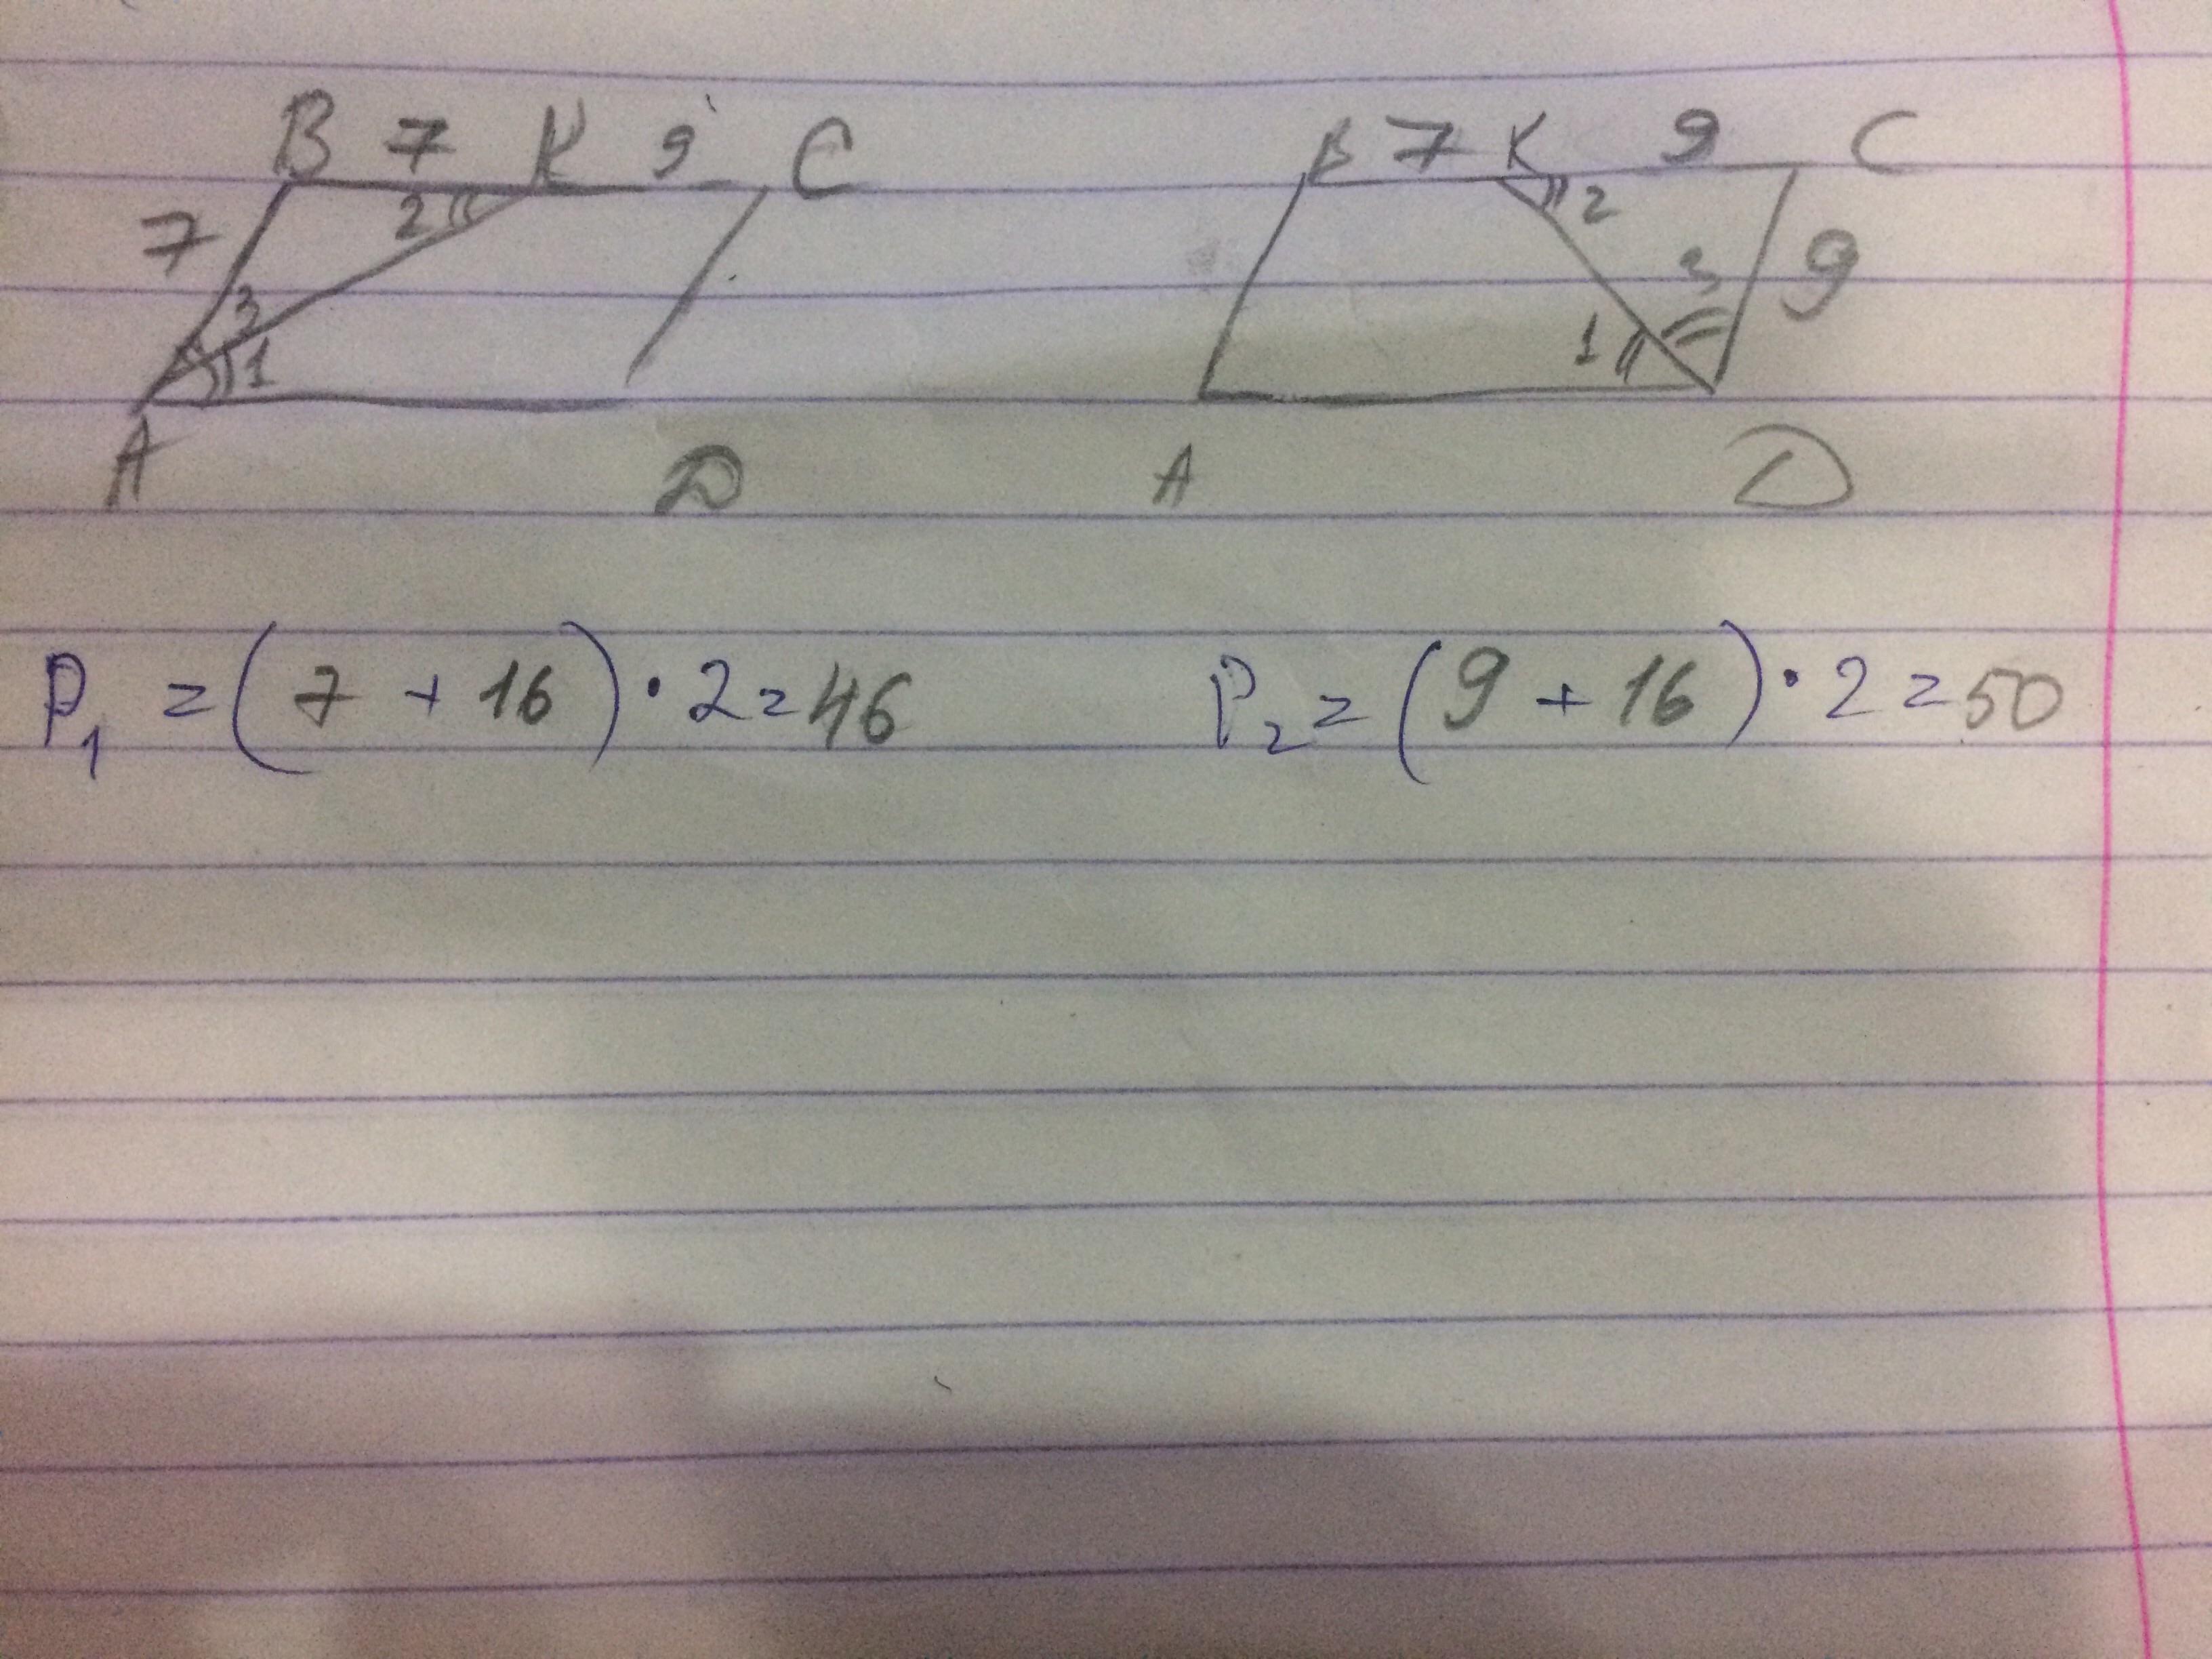 B 7 K 9 C
7 2
3
1
A D
B 7 K 9 C
2
3 9
1
A D
P₁ = (7 + 16) · 2 = 46
P₂ = (9 + 16) · 2 = 50